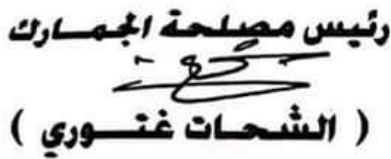 رئيس مصلحة الجمارك
( الشحات غتوري )